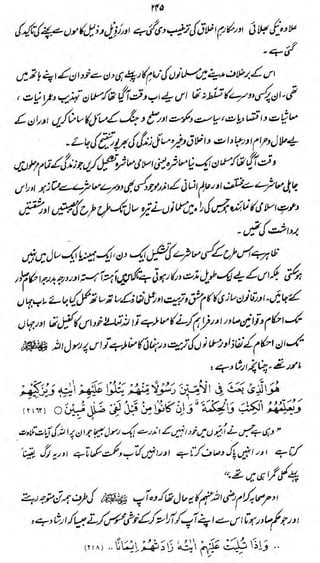 ۲۴۵
علاوہ نیکی بھلائی اور مکارمِ اخلاق کی ترغیب دی گئی ہے اور رَذِیل و ذلیل کاموں سے بچنے کی تاکید کی
گئی ہے۔
اس کے برخلاف مدینے میں مسلمانوں کی زمامِ کار پہلے ہی دن سے خود ان کے اپنے ہاتھ میں
تھی۔ ان پر کسی دوسرے کا تسلط نہ تھا اس لیے اب وقت آگیا تھا کہ مسلمان تہذیب و عمرانیات،
معاشیات و اقتصادیات، سیاست و حکومت اور صلح و جنگ کے مسائل کا سامنا کریں اور ان کے
لیے حلال و حرام اور عبادات و اخلاق وغیرہ مسائلِ زندگی کی بھرپور تنقیح کی جائے۔
وقت آگیا تھا کہ مسلمان ایک نیا معاشرہ یعنی اسلامی معاشرہ تشکیل کریں جو زندگی کے تمام مرحلوں میں
جاہلی معاشرے سے مختلف اور عالمِ انسانی کے اندر موجود کسی بھی دوسرے معاشرے سے ممتاز ہو اور اس
دعوتِ اسلامی کا نمائندہ ہو جس کی راہ میں مسلمانوں نے تیرہ سال تک طرح طرح کی مصیبتیں اور مشقتیں
برداشت کی تھیں۔
ظاہر ہے اس طرح کے کسی معاشرے کی تشکیل ایک دن، ایک مہینہ یا ایک سال میں نہیں
ہو سکتی بلکہ اس کے لیے ایک طویل مدت درکار ہوتی ہے تاکہ اس میں آہستہ آہستہ اور درجہ بدرجہ احکام صادر
کیے جائیں۔ اور قانون سازی کا کام مشق و تربیت اور عملی نفاذ کے ساتھ ساتھ مکمل کیا جائے اب جہاں
تک احکام و قوانین صادر اور فراہم کرنے کا معاملہ ہے تو اللہ تعالیٰ خود اس کا کفیل تھا اور جہاں
تک ان احکام کے نفاذ اور مسلمانوں کی تربیت و رہنمائی کا معاملہ ہے تو اس پر رسول اللہ ﷺ
مامور تھے۔ چنانچہ ارشاد ہے:
هُوَ الَّذِيْ بَعَثَ فِي الْاُمِّيّٖنَ رَسُوْلًا مِّنْهُمْ يَتْلُوْا عَلَيْهِمْ اٰيٰتِهٖ وَيُزَكِّيْهِمْ
وَيُعَلِّمُهُمُ الْكِتٰبَ وَالْحِكْمَةَ ۚ وَاِنْ كَانُوْا مِنْ قَبْلُ لَفِيْ ضَلٰلٍ مُّبِيْنٍ ○ (۲:۶۲)
”وہی ہے جس نے اُمّیوں میں خود انہیں کے اندر سے ایک رسول بھیجا جو ان پر اللہ کی آیات تلاوت
کرتا ہے اور انہیں پاک و صاف کرتا ہے اور انہیں کتاب و حکمت سکھاتا ہے اور یہ لوگ یقیناً
پہلے کھلی گمراہی میں تھے۔“
ادھر صحابہ کرام رضی اللہ عنہم کا یہ حال تھا کہ وہ آپ ﷺ کی طرف ہمہ تن متوجہ رہتے
اور جو حکم صادر ہوتا اس سے اپنے آپ کو آراستہ کرکے خوشی محسوس کرتے جیسا کہ ارشاد ہے:
.. وَاِذَا تُلِيَتْ عَلَيْهِمْ اٰيٰتُهٗ زَادَتْهُمْ اِيْمَانًا.. (۲:۸)